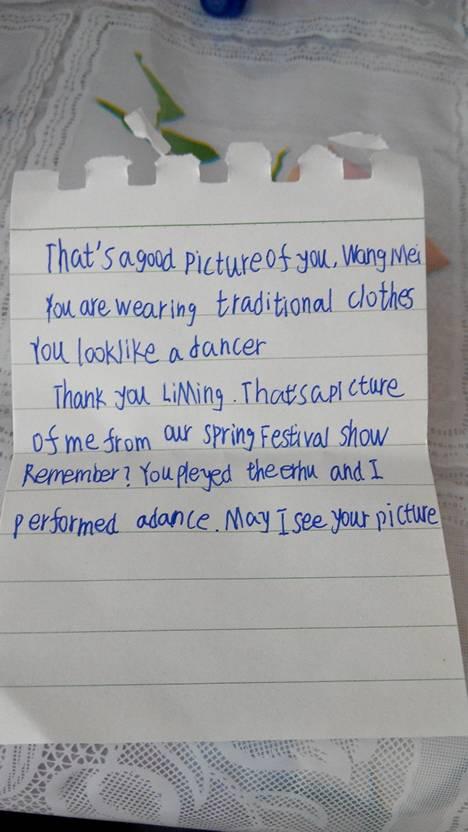 That's a good picture of you, Wang Mei
You are wearing traditional clothes
You look like a dancer
Thank you LiMing. That's a picture
of me from our spring Festival show
Remember? You pleyed the erhu and I
performed a dance. May I see your picture